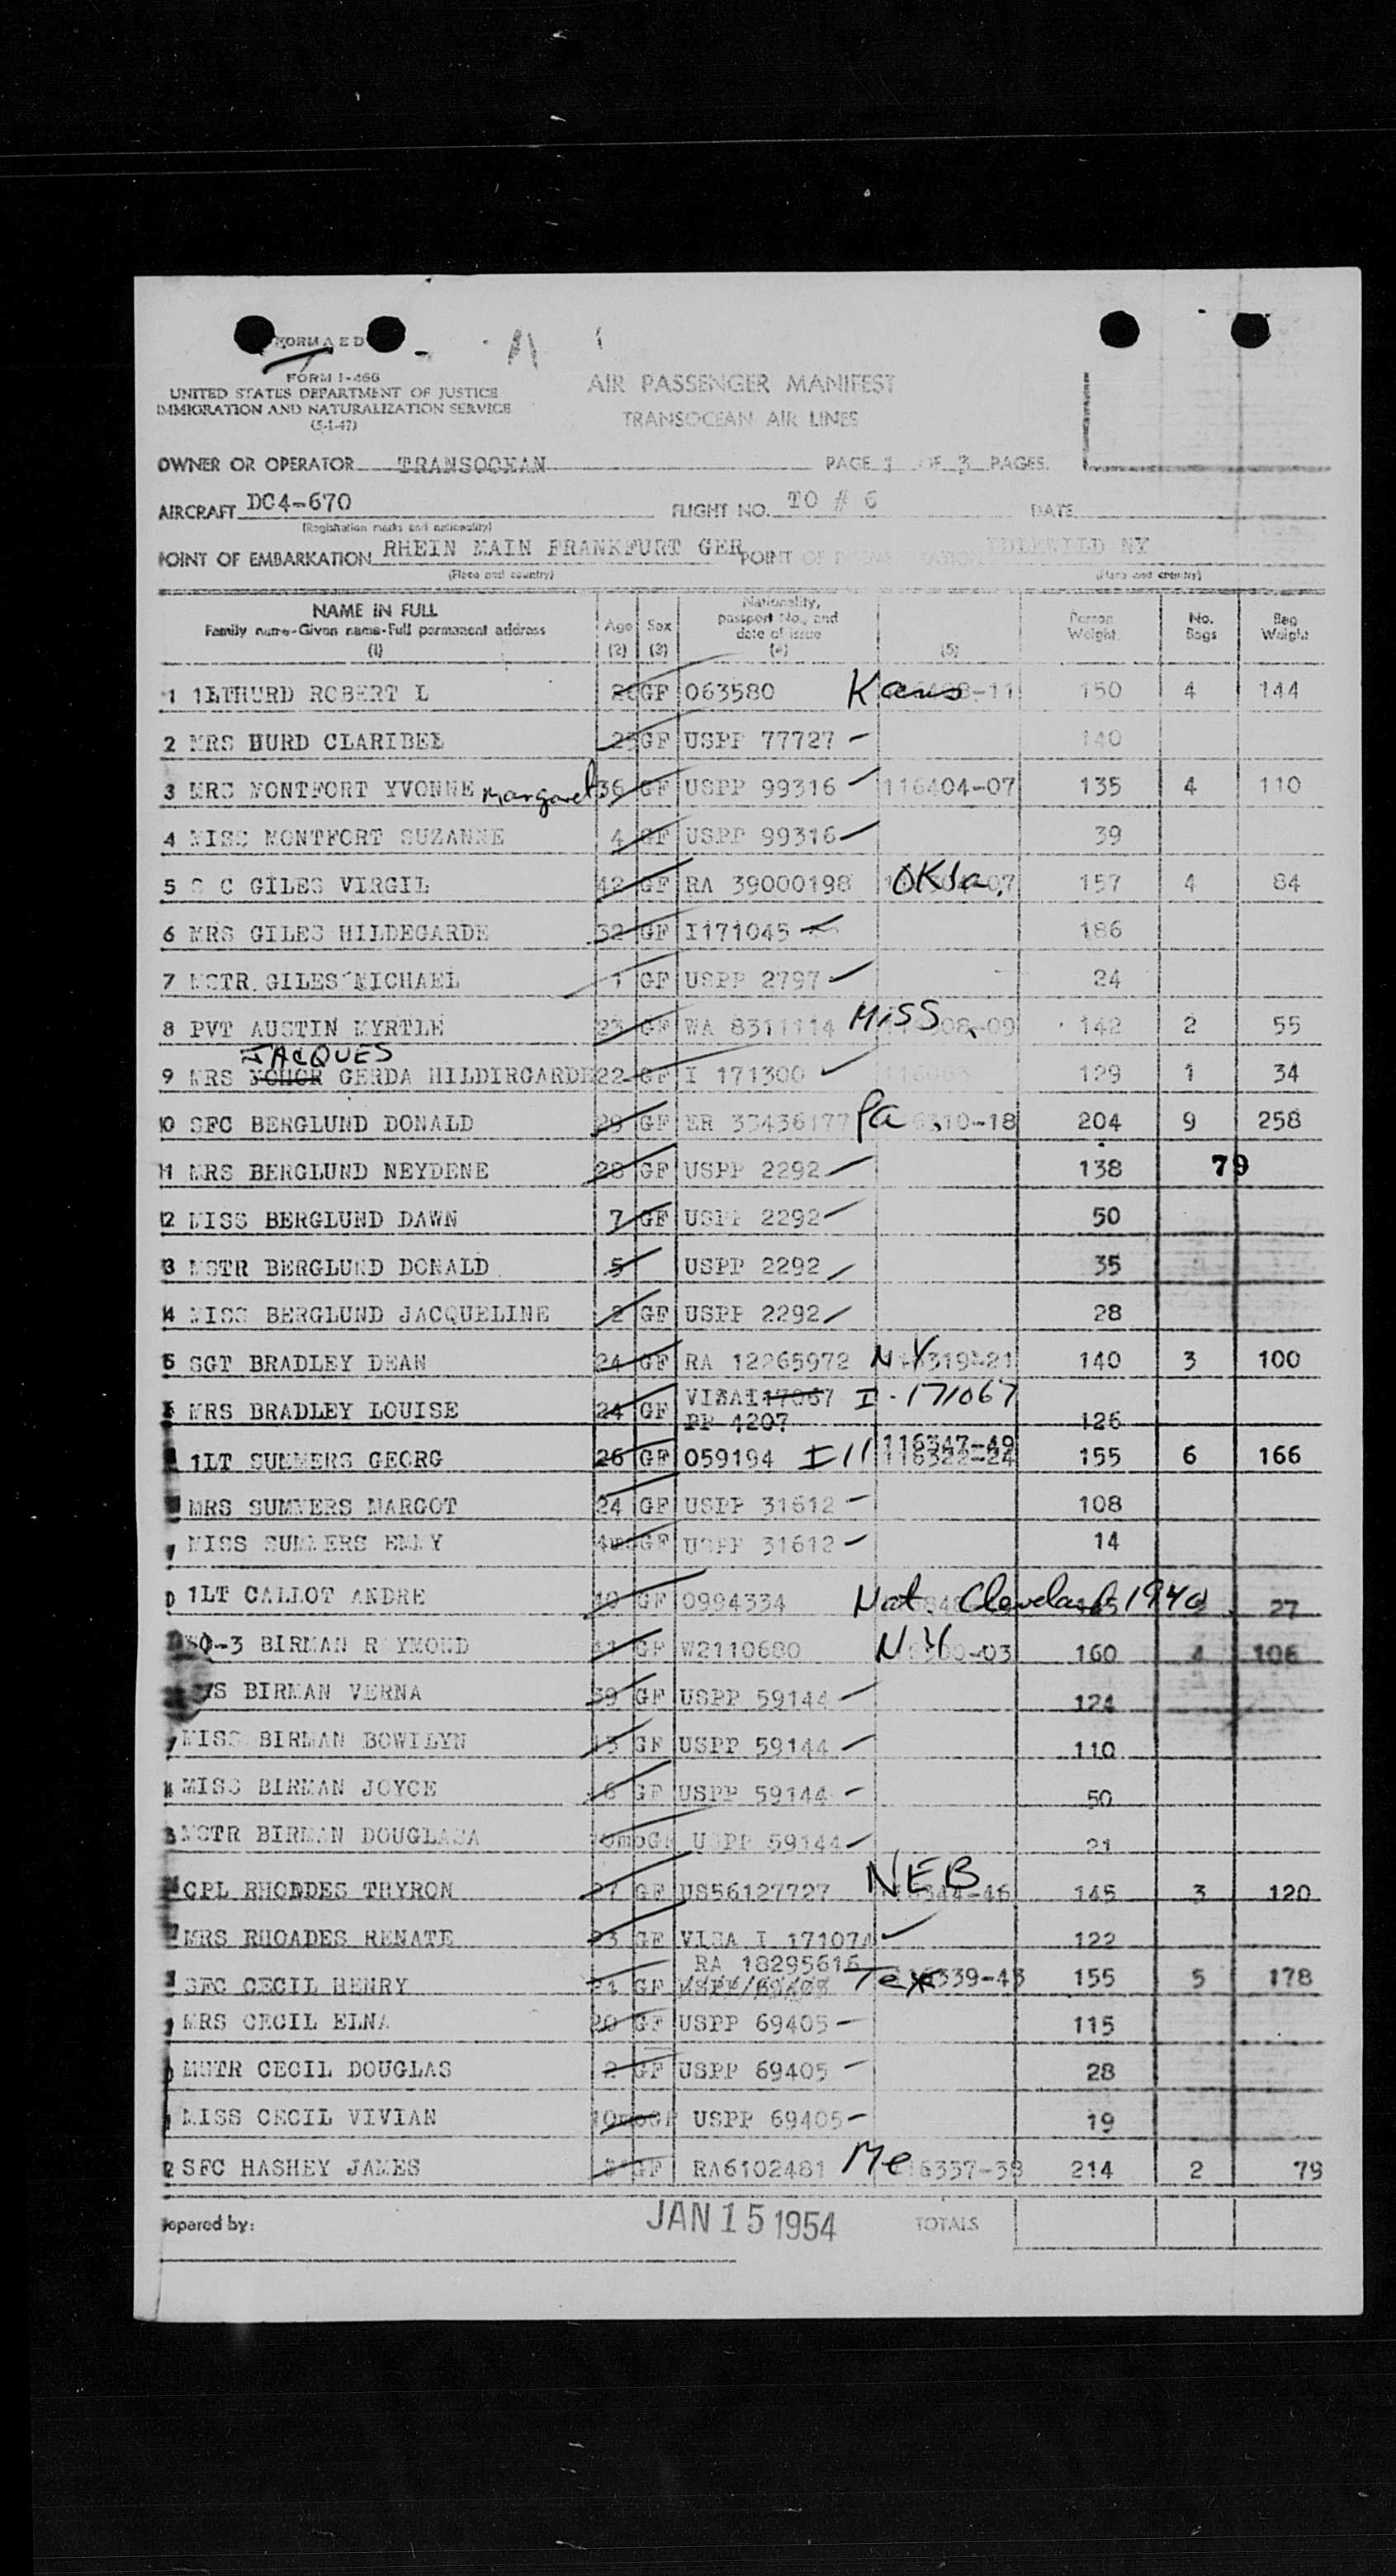 FORM I-466
UNITED STATES DEPARTMENT OF JUSTICE
IMMIGRATION AND NATURALIZATION SERVICE
(5-1-47)
AIR PASSENGER MANIFEST
TRANSOCEAN AIR LINES
OWNER OR OPERATOR TRANSOCEAN PAGE 1 OF 3 PAGES.
AIRCRAFT DC4-670 FLIGHT NO. TO # 6 DATE
(Registration marks and nationality)
POINT OF EMBARKATION RHEIN MAIN FRANKFURT GER POINT OF IDLEWILD NY
(Place and country) (Place and country)
NAME IN FULL
Family name-Given name-Full permanent address
(1)
Age
(2)
Sex
(3)
Nationality,
passport No., and
date of issue
(4)
(5)
Person
Weight
No.
Bags
Bag
Weight
1 1LT HURD ROBERT L GF 063580 Kans -11 150 4 144
2 MRS HURD CLARIBEL 25 GF USPP 77727 140
3 MRS MONTFORT YVONNE Margaret 36 GF USPP 99316 116404-07 135 4 110
4 MISS MONTFORT SUZANNE 4 GF USPP 99316 39
5 GILES VIRGIL 42 GF RA 39000198 OKla. 07 157 4 84
6 MRS GILES HILDEGARDE 32 GF I171045 186
7 MSTR. GILES MICHAEL 1 GF USPP 2797 24
8 PVT AUSTIN MYRTLE 23 GF WA 8311114 MISS. 08-09 142 2 55
JACQUES
9 MRS GERDA HILDIRGARDE 22 GF I 171300 129 1 34
10 SFC BERGLUND DONALD 29 GF ER 33436177 Pa. 10-18 204 9 258
11 MRS BERGLUND NEYDENE 28 GF USPP 2292 138 79
12 MISS BERGLUND DAWN 7 GF USPP 2292 50
13 MSTR BERGLUND DONALD 5 USPP 2292 35
14 MISS BERGLUND JACQUELINE 2 GF USPP 2292 28
15 SGT BRADLEY DEAN 24 GF RA 12265972 N Y 319-21 140 3 100
MRS BRADLEY LOUISE 24 GF VISA I17067 I-171067
PP 4207 126
1LT SUMMERS GEORG 26 GF 059194 Ill 116347-49
116322-24 155 6 166
MRS SUMMERS MARGOT 24 GF USPP 31612 108
MISS SUMMERS EMMY GF USPP 31612 14
1LT CALLOT ANDRE GF 0994334 Nat. Cleveland 1940 27
BIRMAN RAYMOND 41 GF W2110680 N.Y. -03 160 4 106
BIRMAN VERNA 39 GF USPP 59144 124
MISS BIRMAN BOWILYN 13 GF USPP 59144 110
MISS BIRMAN JOYCE 6 GF USPP 59144 50
MSTR BIRMAN DOUGLASA GF USPP 59144 21
CPL RHODDES THYRON 27 GF US56127727 NEB 344-46 145 3 120
MRS RHOADES RENATE 23 GF VISA I 171074 122
RA 18295616
SFC CECIL HENRY 21 GF Tex 339-43 155 5 178
MRS CECIL ELNA 20 GF USPP 69405 115
MSTR CECIL DOUGLAS 2 GF USPP 69405 28
MISS CECIL VIVIAN 10mo GF USPP 69405 19
SFC HASHEY JAMES GF RA6102481 Me 6337-38 214 2 79
Prepared by: JAN 15 1954 TOTALS